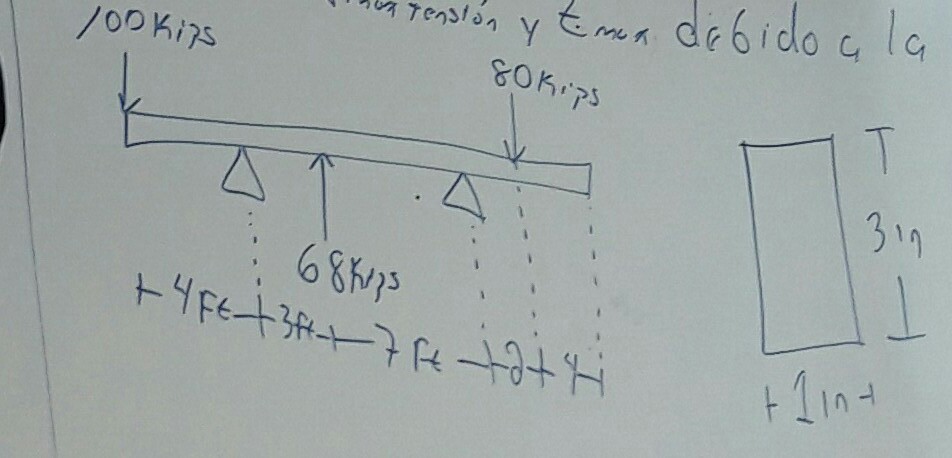 tensión y τmax debido a la
100 Kips
80 Kips
68 Kips
4 Ft 3 ft 7 Ft 2 4
3 in
1 in